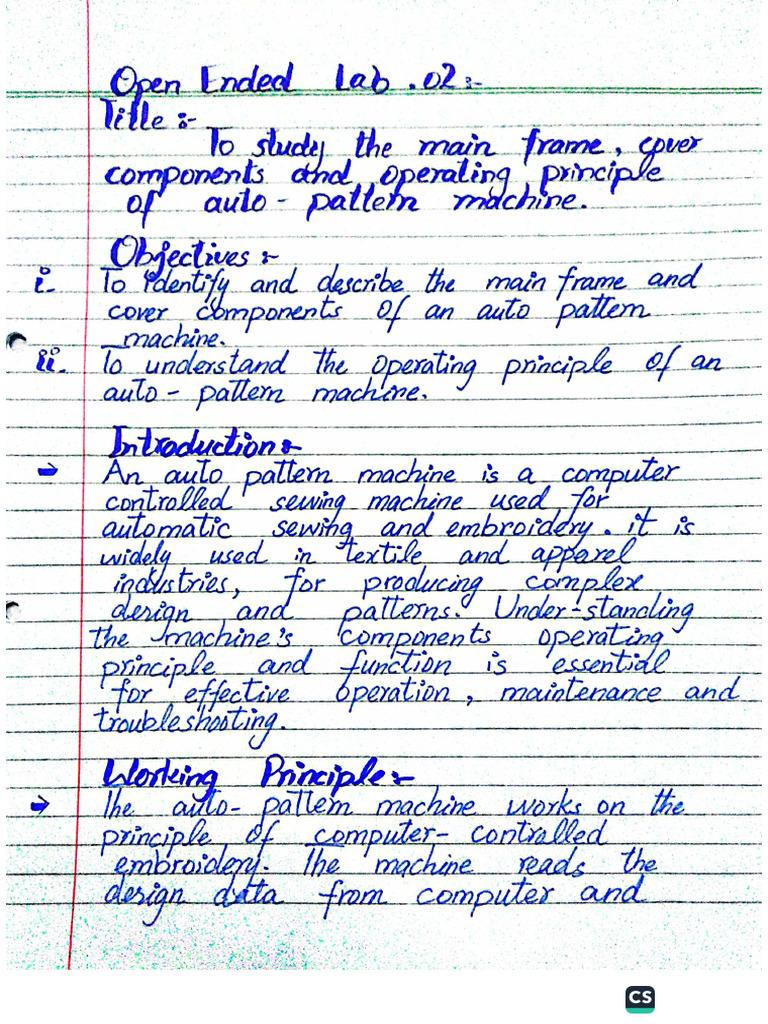 Open Ended Lab .02:-
Title :-
To study the main frame, cover
components and operating principle
of auto - pattern machine.
Objectives :-
i. To identify and describe the main frame and
cover components of an auto pattern
machine.
ii. To understand the operating principle of an
auto - pattern machine.
Introduction:-
→ An auto pattern machine is a computer
controlled sewing machine used for
automatic sewing and embroidery. it is
widely used in textile and apparel
industries, for producing complex
design and patterns. Under-standing
the machine's components operating
principle and function is essential
for effective operation, maintenance and
troubleshooting.
Working Principle:-
→ The auto- pattern machine works on the
principle of computer- controlled
embroidery. The machine reads the
design data from computer and
CS